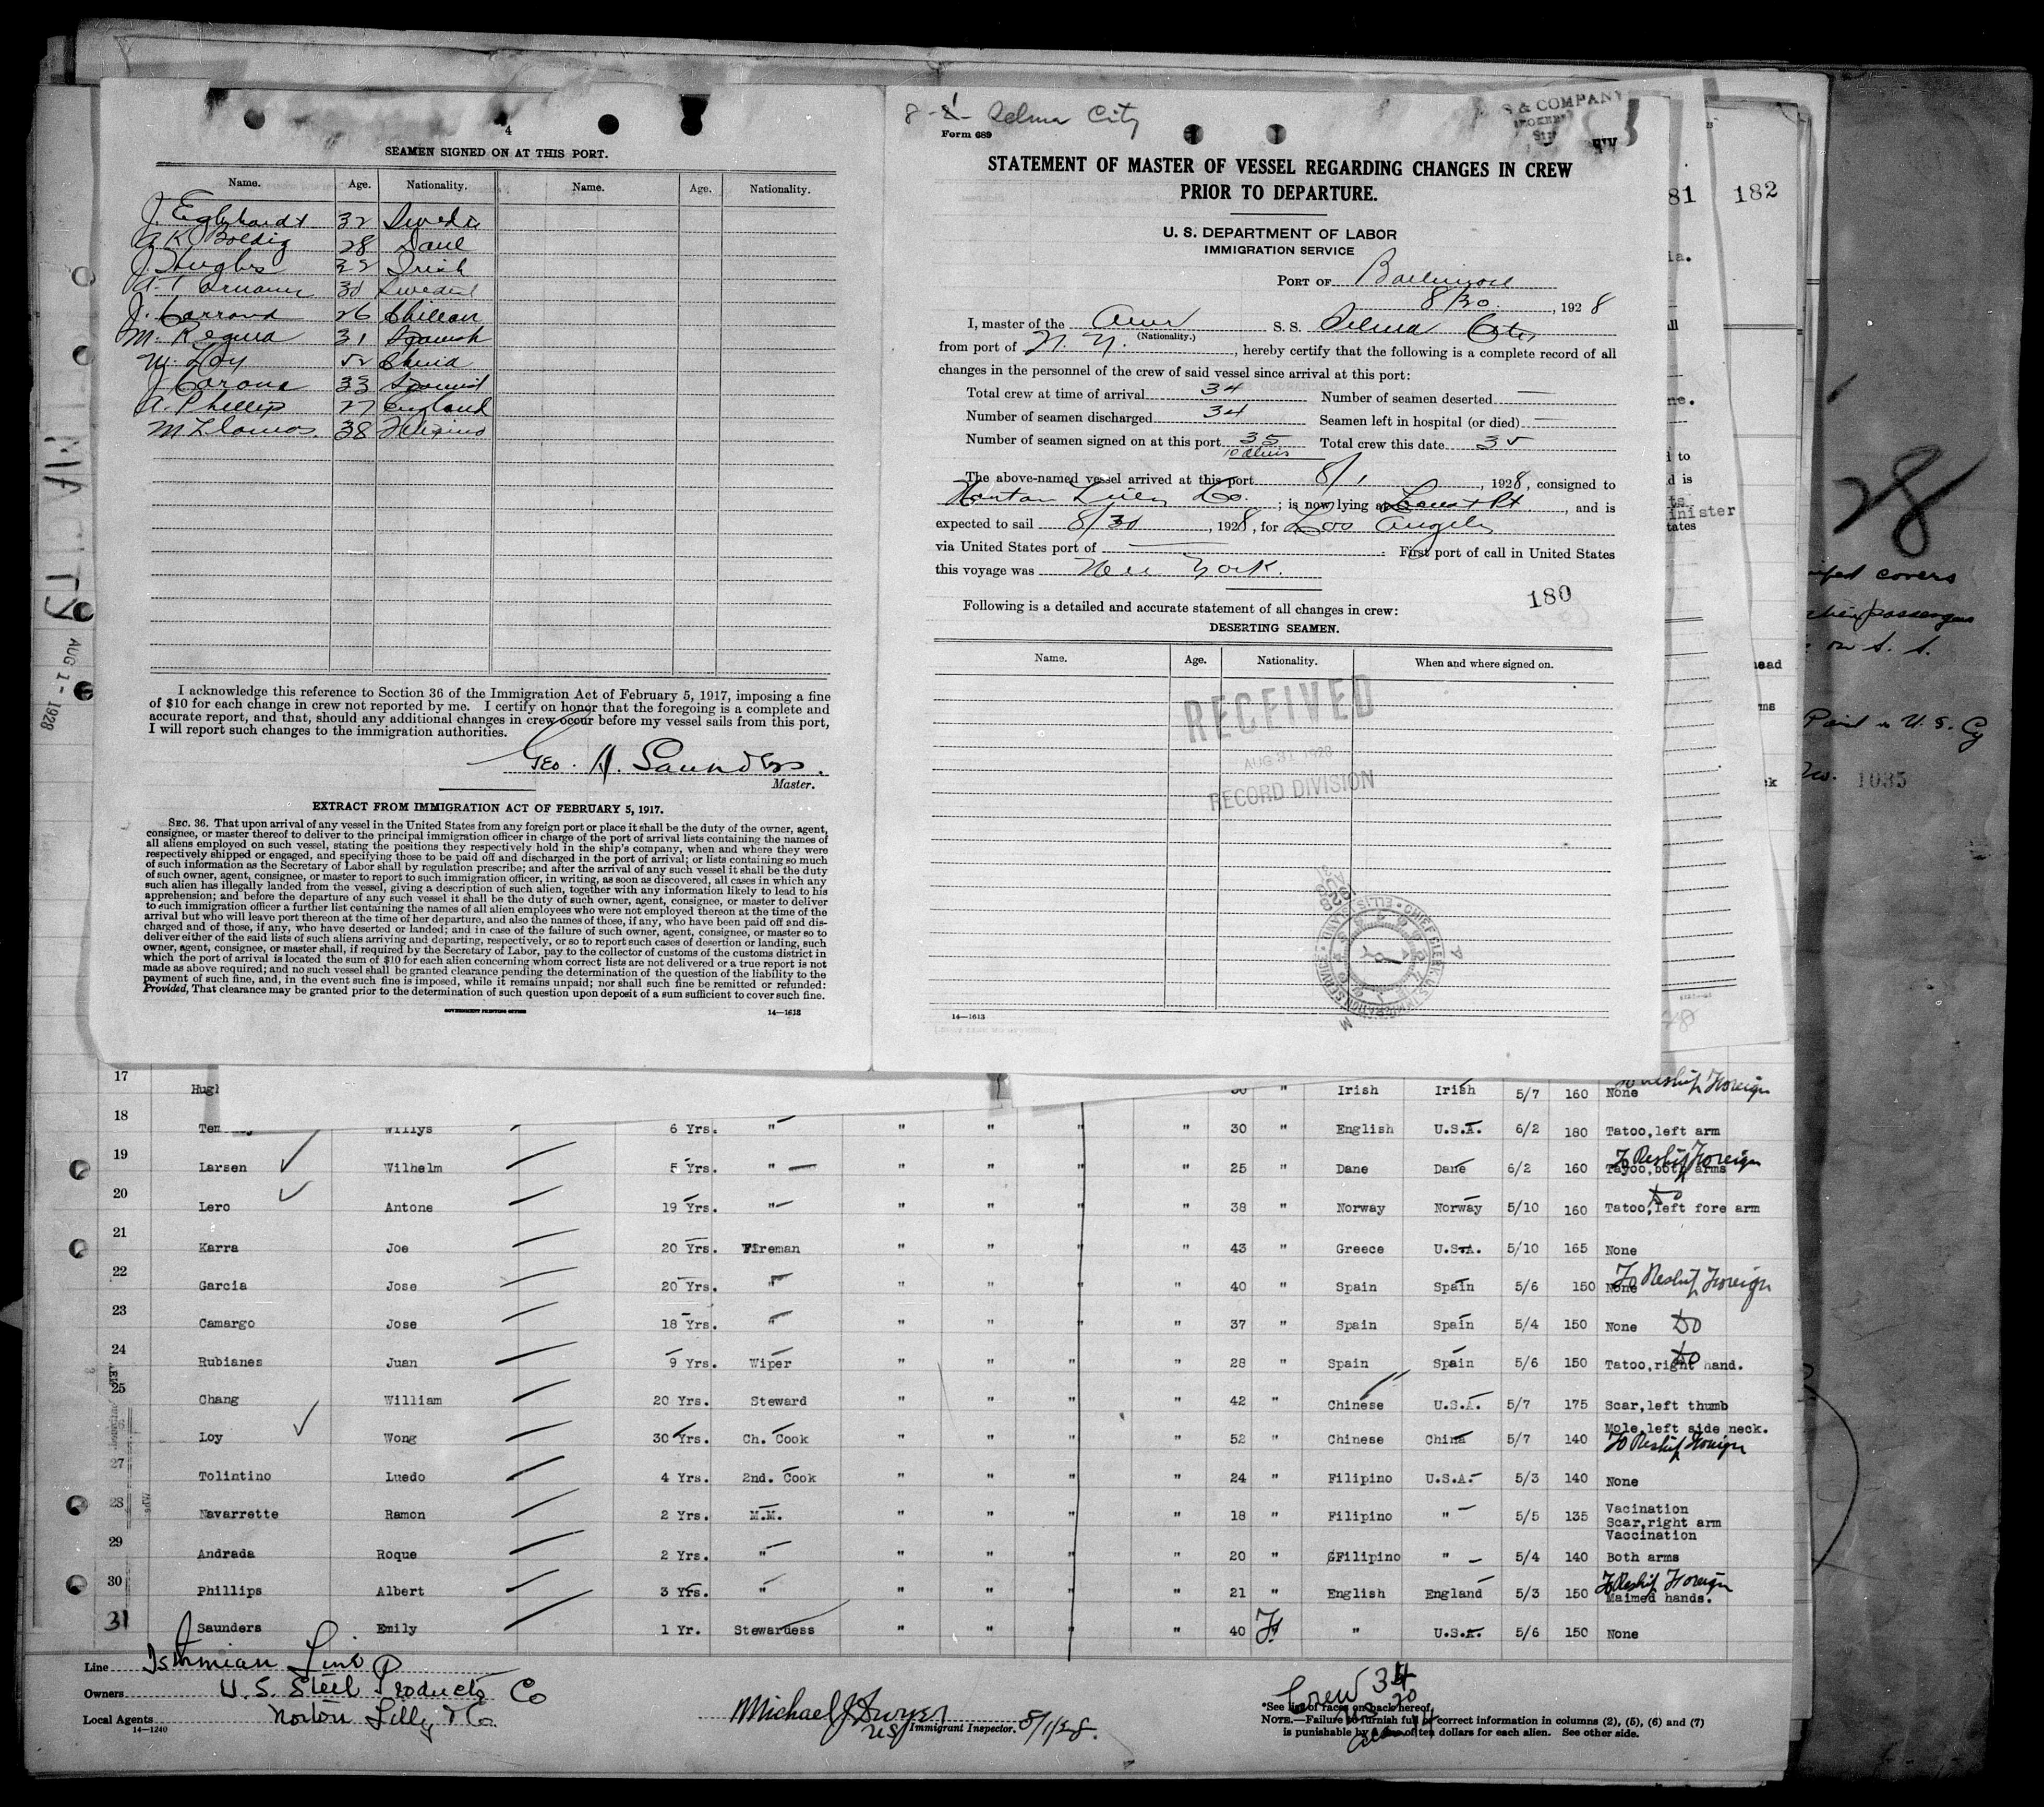 4
SEAMEN SIGNED ON AT THIS PORT.
Name. Age. Nationality. Name. Age. Nationality.
32
A K Boldig 28
J. Hughes Irish
30 Sweden
26 Chilean
31 Spanish
M. Loy 52 China
33
A. Phillip 27 England
M Llamos. 38
I acknowledge this reference to Section 36 of the Immigration Act of February 5, 1917, imposing a fine
of $10 for each change in crew not reported by me. I certify on honor that the foregoing is a complete and
accurate report, and that, should any additional changes in crew occur before my vessel sails from this port,
I will report such changes to the immigration authorities.
Geo. H. Saunders.
Master.
EXTRACT FROM IMMIGRATION ACT OF FEBRUARY 5, 1917.
SEC. 36. That upon arrival of any vessel in the United States from any foreign port or place it shall be the duty of the owner, agent,
consignee, or master thereof to deliver to the principal immigration officer in charge of the port of arrival lists containing the names of
all aliens employed on such vessel, stating the positions they respectively hold in the ship's company, when and where they were
respectively shipped or engaged, and specifying those to be paid off and discharged in the port of arrival; or lists containing so much
of such information as the Secretary of Labor shall by regulation prescribe; and after the arrival of any such vessel it shall be the duty
of such owner, agent, consignee, or master to report to such immigration officer, in writing, as soon as discovered, all cases in which any
such alien has illegally landed from the vessel, giving a description of such alien, together with any information likely to lead to his
apprehension; and before the departure of any such vessel it shall be the duty of such owner, agent, consignee, or master to deliver
to such immigration officer a further list containing the names of all alien employees who were not employed thereon at the time of the
arrival but who will leave port thereon at the time of her departure, and also the names of those, if any, who have been paid off and dis-
charged and of those, if any, who have deserted or landed; and in case of the failure of such owner, agent, consignee, or master so to
deliver either of the said lists of such aliens arriving and departing, respectively, or so to report such cases of desertion or landing, such
owner, agent, consignee, or master shall, if required by the Secretary of Labor, pay to the collector of customs of the customs district in
which the port of arrival is located the sum of $10 for each alien concerning whom correct lists are not delivered or a true report is not
made as above required; and no such vessel shall be granted clearance pending the determination of the question of the liability to the
payment of such fine, and, in the event such fine is imposed, while it remains unpaid; nor shall such fine be remitted or refunded:
Provided, That clearance may be granted prior to the determination of such question upon deposit of a sum sufficient to cover such fine.
GOVERNMENT PRINTING OFFICE 14—1613
AUG 1- 1928
8-1- Selma City
Form 689
& COMPANY
STATEMENT OF MASTER OF VESSEL REGARDING CHANGES IN CREW
PRIOR TO DEPARTURE.
U. S. DEPARTMENT OF LABOR
IMMIGRATION SERVICE
PORT OF Baltimore
8/30, 1928
I, master of the Amer S. S. Selma City
(Nationality.)
from port of N. Y., hereby certify that the following is a complete record of all
changes in the personnel of the crew of said vessel since arrival at this port:
Total crew at time of arrival 34 Number of seamen deserted —
Number of seamen discharged 34 Seamen left in hospital (or died) —
Number of seamen signed on at this port 35 Total crew this date 35
10 aliens
The above-named vessel arrived at this port 8/1, 1928, consigned to
Norton Lilly Co.; is now lying at Locust Pt, and is
expected to sail 8/30, 1928, for Los Angeles
via United States port of — . First port of call in United States
this voyage was New York.
180
Following is a detailed and accurate statement of all changes in crew:
DESERTING SEAMEN.
Name. Age. Nationality. When and where signed on.
RECEIVED
AUG 31 1928
RECORD DIVISION
CHIEF CLERK U.S. IMMIGRATION SERVICE ELLIS ISLAND
14—1613
81 182
inister
tates
28
covers
passengers
on S. S.
Paid in U. S. Cy
No. 1035
17 Irish Irish 5/7 160 None To Reship Foreign
18 Willys 6 Yrs. " " " " " 30 " English U.S.A. 6/2 180 Tatoo,left arm
19 Larsen Wilhelm 5 Yrs. " " " " " 25 " Dane Dane 6/2 160 Tayoo,both arms To Reship Foreign
20 Lero Antone 19 Yrs. " " " " " 38 " Norway Norway 5/10 160 Tatoo,left fore arm Do
21 Karra Joe 20 Yrs. Fireman " " " " 43 " Greece U.S.A. 5/10 165 None
22 Garcia Jose 20 Yrs. " " " " " 40 " Spain Spain 5/6 150 None To Reship Foreign
23 Camargo Jose 18 Yrs. " " " " " 37 " Spain Spain 5/4 150 None Do
24 Rubianes Juan 9 Yrs. Wiper " " " " 28 " Spain Spain 5/6 150 Tatoo,right hand. Do
25 Chang William 20 Yrs. Steward " " " " 42 " Chinese U.S.A. 5/7 175 Scar,left thumb
Loy Wong 30 Yrs. Ch. Cook " " " " 52 " Chinese China 5/7 140 Mole,left side neck. To Reship Foreign
27 Tolintino Luedo 4 Yrs. 2nd. Cook " " " " 24 " Filipino U.S.A. 5/3 140 None
28 Navarrette Ramon 2 Yrs. M.M. " " " " 18 " Filipino " 5/5 135 Vacination
Scar,right arm
29 Andrada Roque 2 Yrs. " " " " " 20 " Filipino " 5/4 140 Vaccination
Both arms
30 Phillips Albert 3 Yrs. " " " " " 21 " English England 5/3 150 Maimed hands. To Reship Foreign
31 Saunders Emily 1 Yr. Stewardess " " " " 40 F " U.S.A. 5/6 150 None
Line Isthmian Line
Owners U. S. Steel Products Co
Local Agents Norton Lilly & Co
14—1240
Michael J Dwyer
US Immigrant Inspector. 8/1/28.
Crew 34
20
14
*See list of races on back hereof.
NOTE.—Failure to furnish full or correct information in columns (2), (5), (6) and (7)
is punishable by of ten dollars for each alien. See other side.